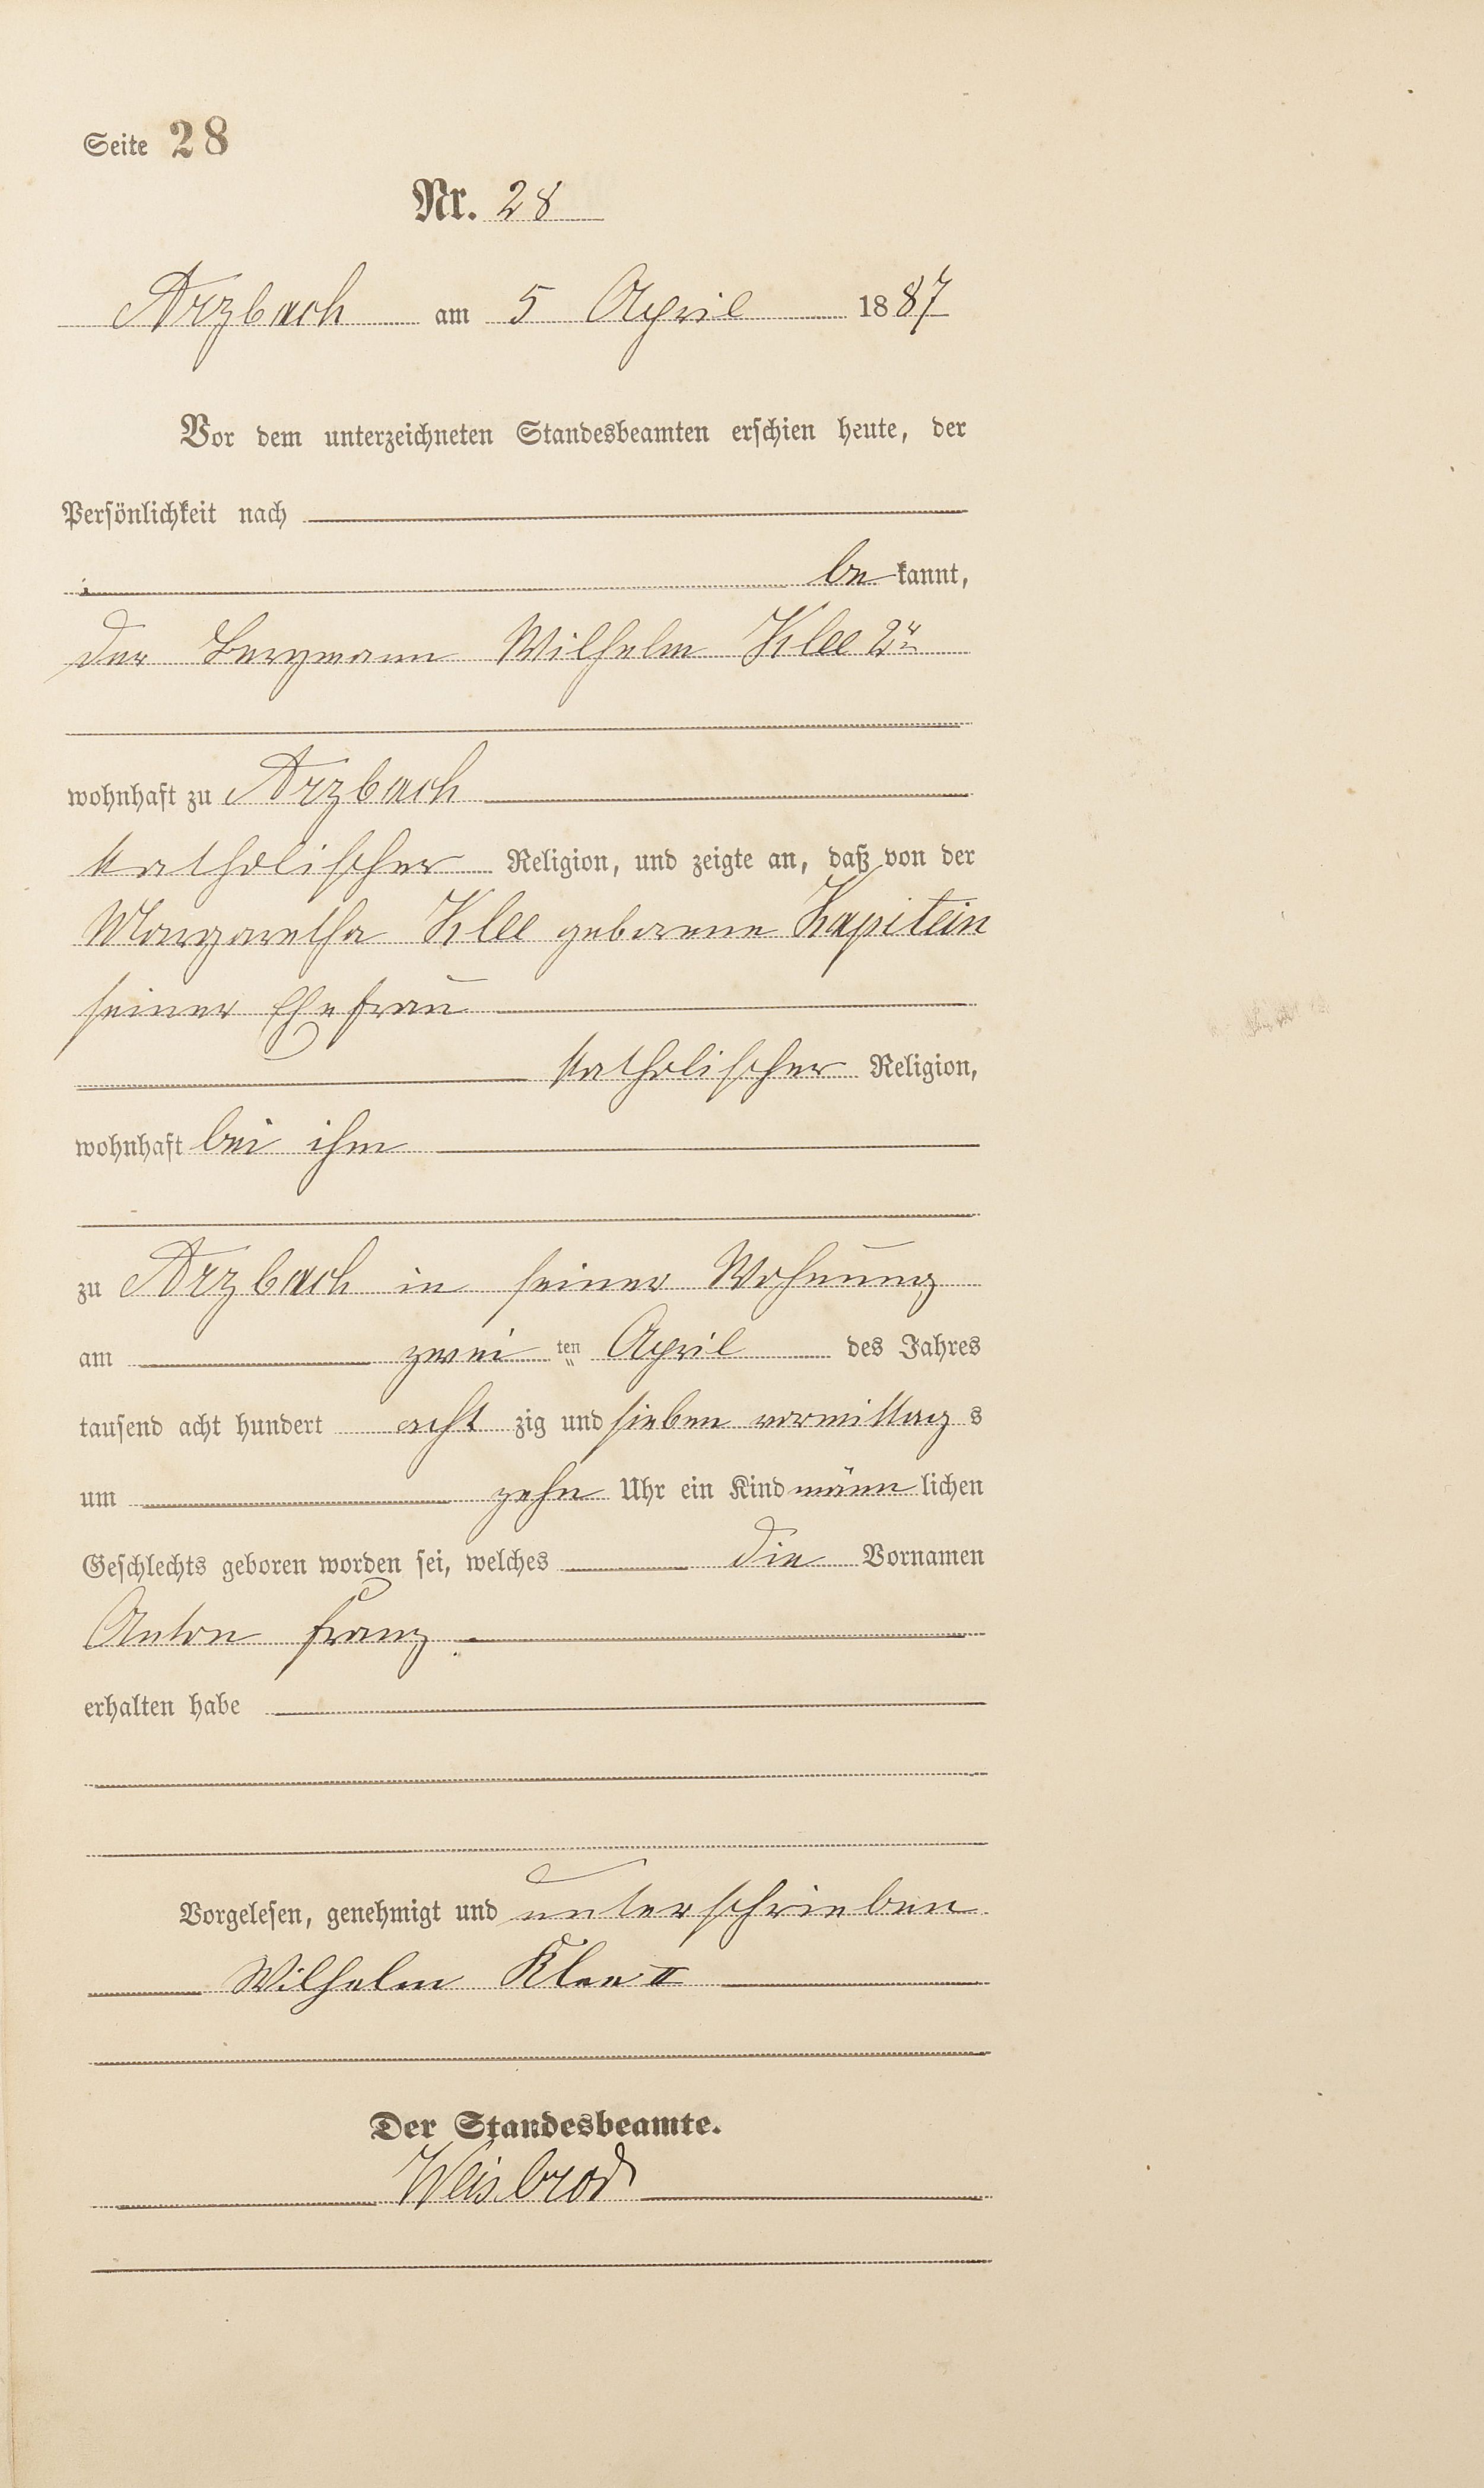 Seite 28
Nr. 28
Arzbach am 5 April 1887
Vor dem unterzeichneten Standesbeamten erschien heute, der
Persönlichkeit nach
bekannt,
der Bergmann Wilhelm Klee 2r
wohnhaft zu Arzbach
katholischer Religion, und zeigte an, daß von der
Margaretha Klee geborene Kapitein
seiner Ehefrau
katholischer Religion,
wohnhaft bei ihm
zu Arzbach in seiner Wohnung
am zwei ten April des Jahres
tausend acht hundert acht zig und sieben vormittag s
um zehn Uhr ein Kind männlichen
Geschlechts geboren worden sei, welches die Vornamen
Anton Franz
erhalten habe
Vorgelesen, genehmigt und unterschrieben
Wilhelm Klee II
Der Standesbeamte.
Weisbrod